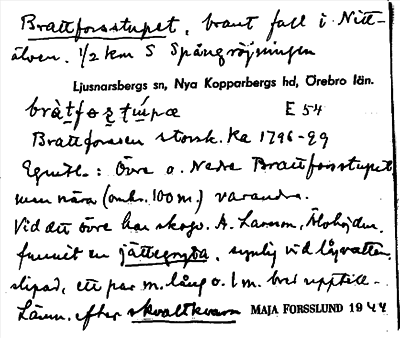 Brattforsstupet, brant fall i Nitt-
älven. 1/2 km S Spångröjningen
Ljusnarsbergs sn, Nya Kopparbergs hd, Örebro län.
E 54
Brattforsen storsk. Ka 1796-99
Egentl.: Övre o. Nedre Brattforsstupet
men nära (omkr. 100 m.) varandra.
Vid det övre har skogv. A. Larsson,
funnit en jättegryta, synlig vid lågvatten,
slipad, ett par m. lång o. 1 m. bred upptill.
Lämn. efter skvaltkvarn MAJA FORSSLUND 1944